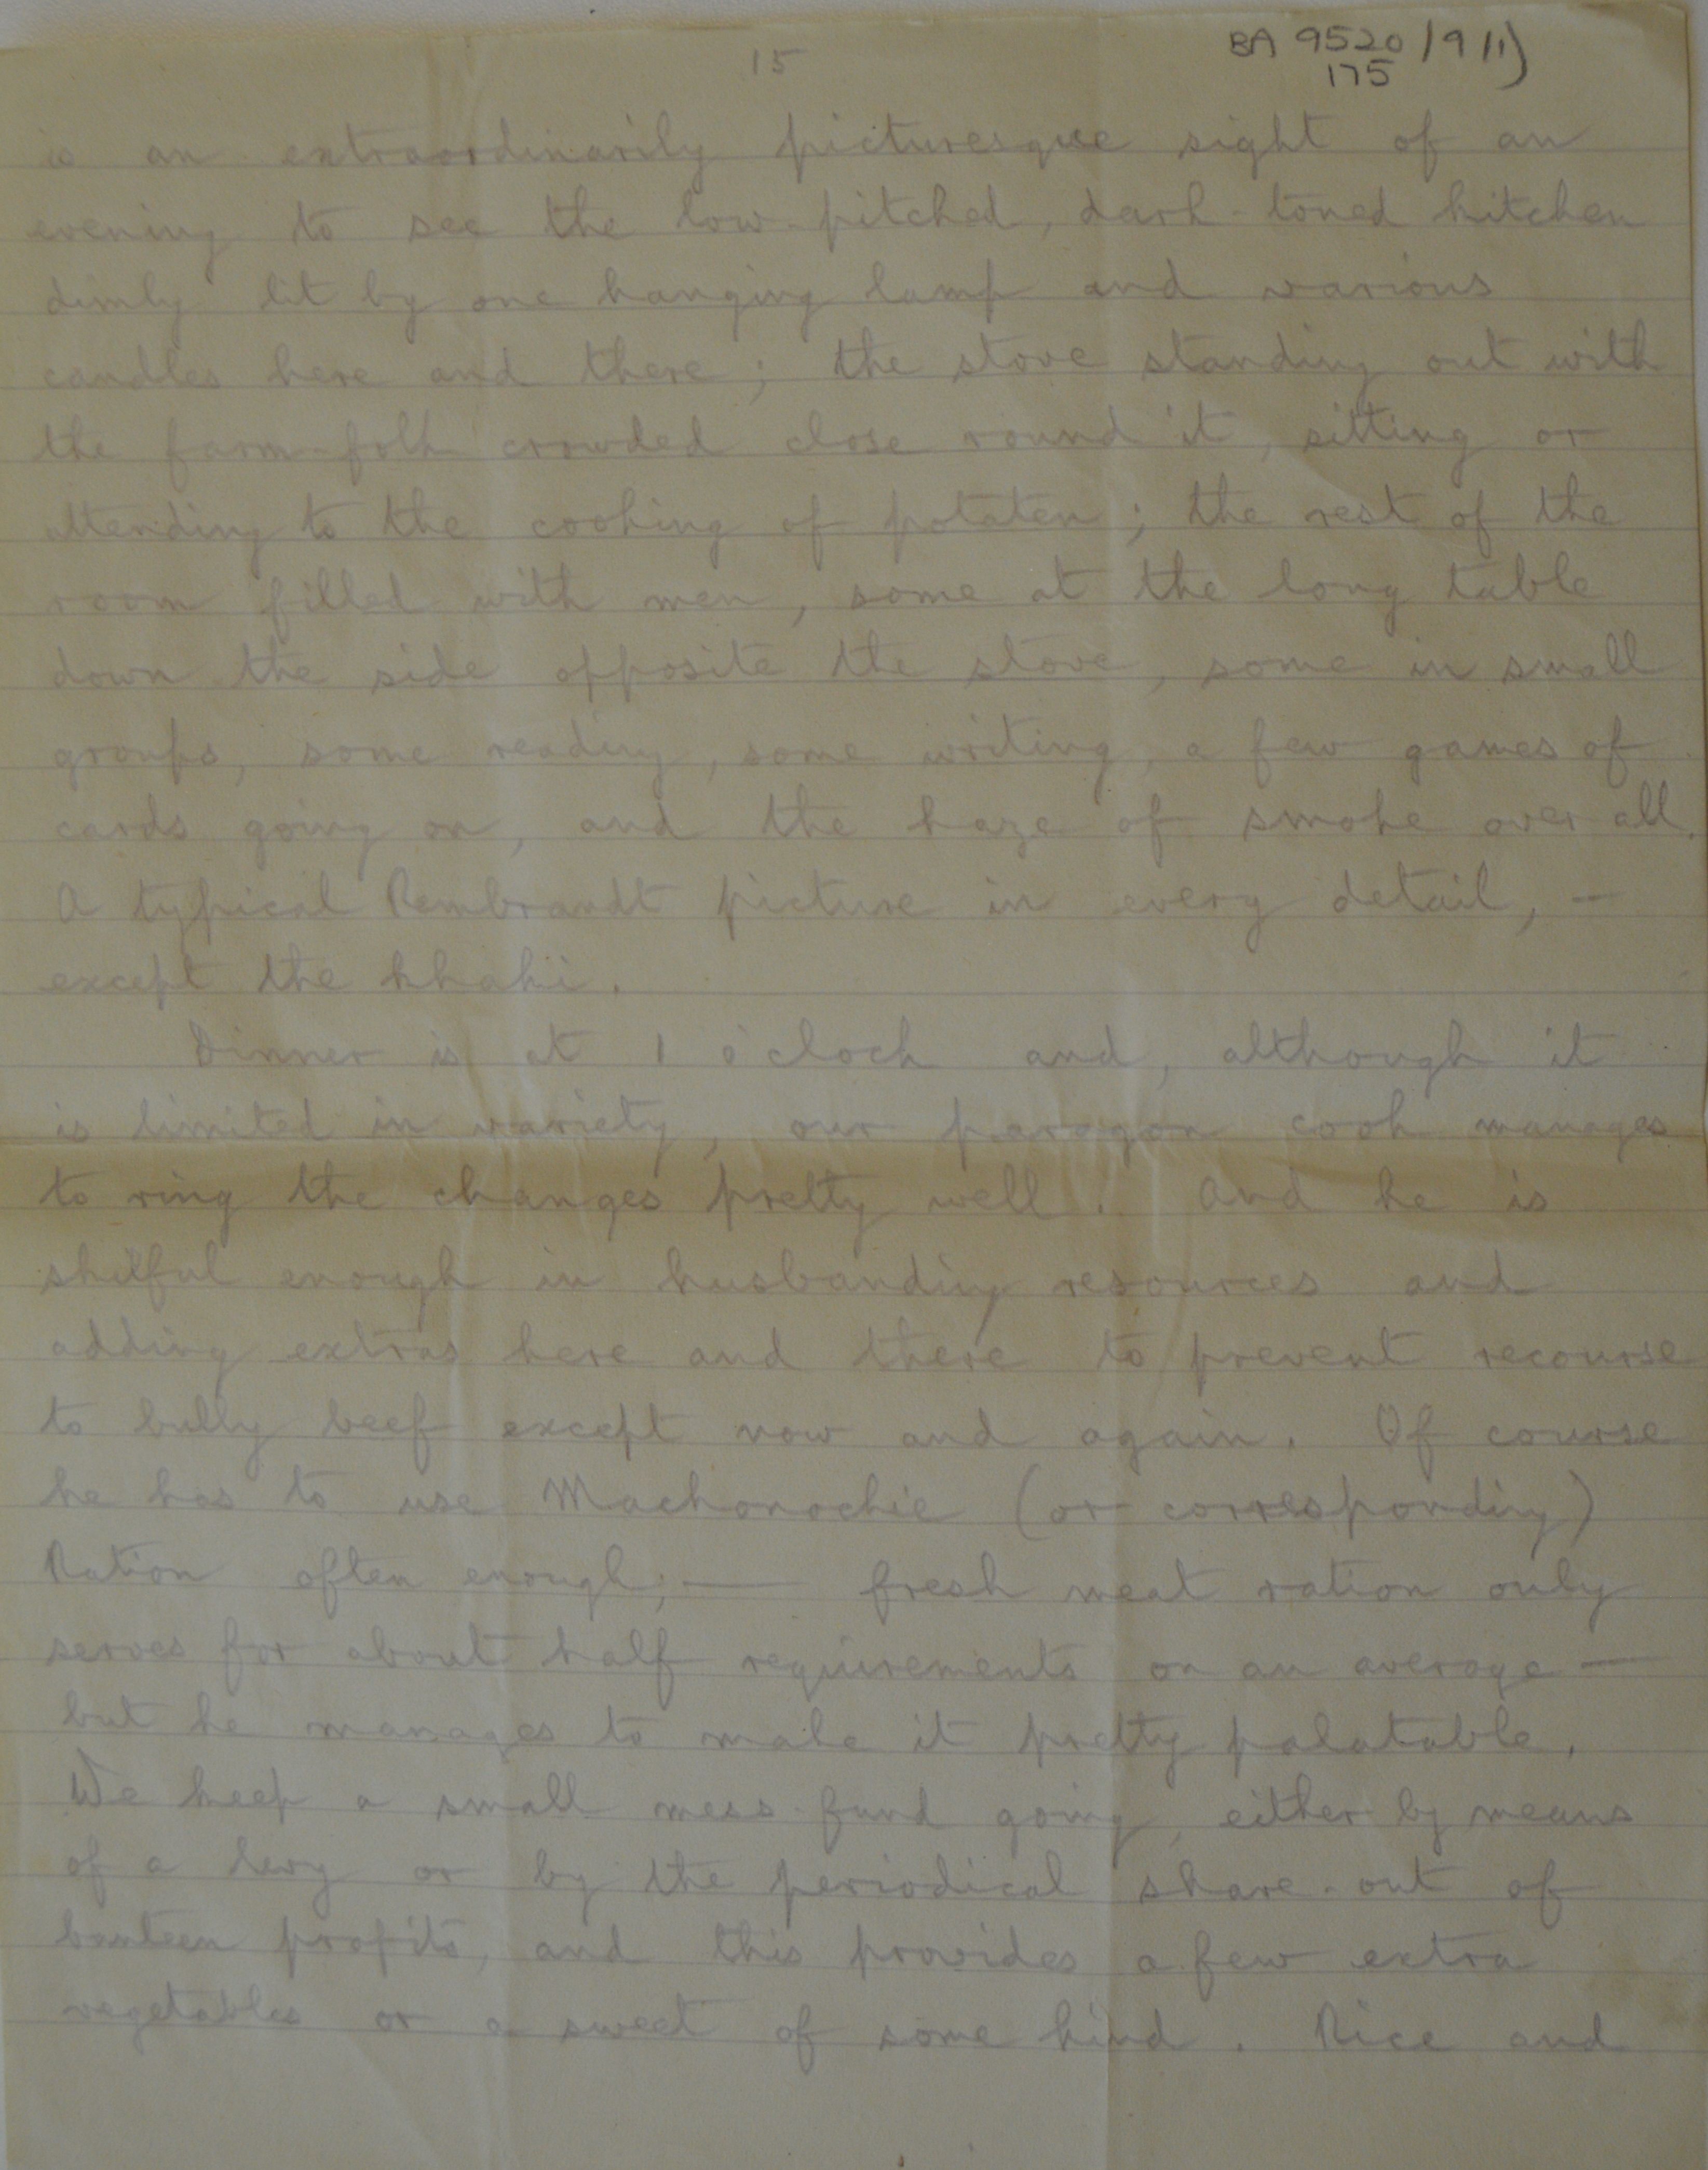 15
BA 9520/9 11)
175
is an extraordinarily picturesque sight of an
evening to see the low-pitched, dark-toned kitchen
dimly lit by one hanging lamp and various
candles here and there; the stove standing out with
the farm-folk crowded close round it, sitting or
attending to the cooking of potaten; the rest of the
room filled with men, some at the long table
down the side opposite the stove, some in small
groups, some reading, some writing, a few games of
cards going on, and the haze of smoke over all.
A typical Rembrandt picture in every detail, —
except the khaki.
Dinner is at 1 o'clock and, although it
is limited in variety, our paragon cook manages
to ring the changes pretty well. And he is
skilful enough in husbanding resources and
adding extras here and there to prevent recourse
to bully beef except now and again. Of course
he has to use Machonochie (or corresponding)
Ration often enough; — fresh meat ration only
serves for about half requirements on an average —
but he manages to make it pretty palatable.
We keep a small mess-fund going, either by means
of a levy or by the periodical share-out of
canteen profits, and this provides a few extra
vegetables or a sweet of some kind. Rice and